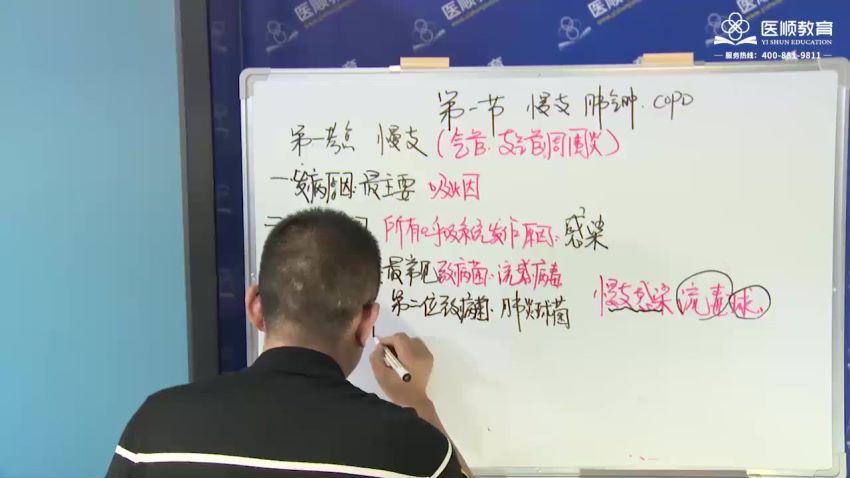 医顺教育
YI SHUN EDUCATION
服务热线：400-861-9811
第一节 慢支 肺气肿. COPD
第一考点 慢支 (气管.支气管周围炎)
一.发病原因:最主要 吸烟
二
所有呼吸系统发作原因:感染
最常见致病菌:流感病毒
慢支感染 流毒球.
第二位致病菌:肺炎球菌